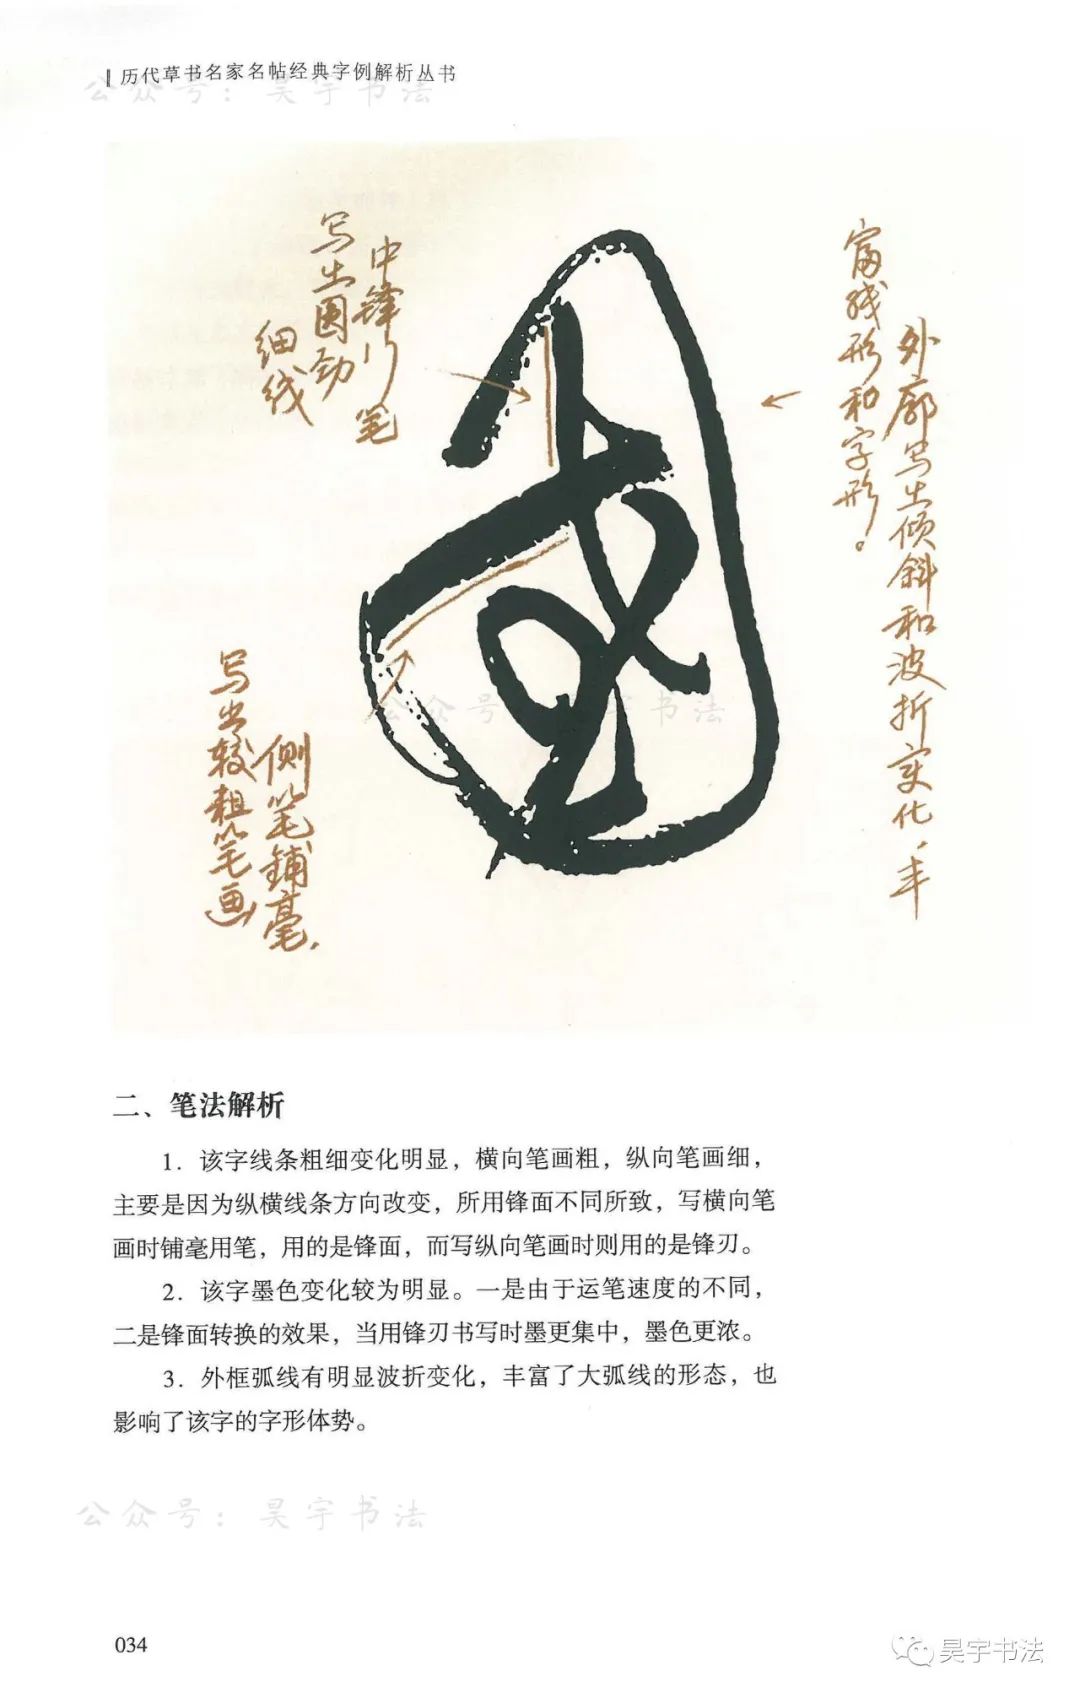 历代草书名家名帖经典字例解析丛书
公众号：昊宇书法
中锋行笔
写出圆劲
细线
外廓写出倾斜和波折变化，丰
富线形和字形。
侧笔铺毫，
写出较粗笔画
公众号：昊宇书法
二、笔法解析
1．该字线条粗细变化明显，横向笔画粗，纵向笔画细，
主要是因为纵横线条方向改变，所用锋面不同所致，写横向笔
画时铺毫用笔，用的是锋面，而写纵向笔画时则用的是锋刃。
2．该字墨色变化较为明显。一是由于运笔速度的不同，
二是锋面转换的效果，当用锋刃书写时墨更集中，墨色更浓。
3．外框弧线有明显波折变化，丰富了大弧线的形态，也
影响了该字的字形体势。
公众号：昊宇书法
034
昊宇书法